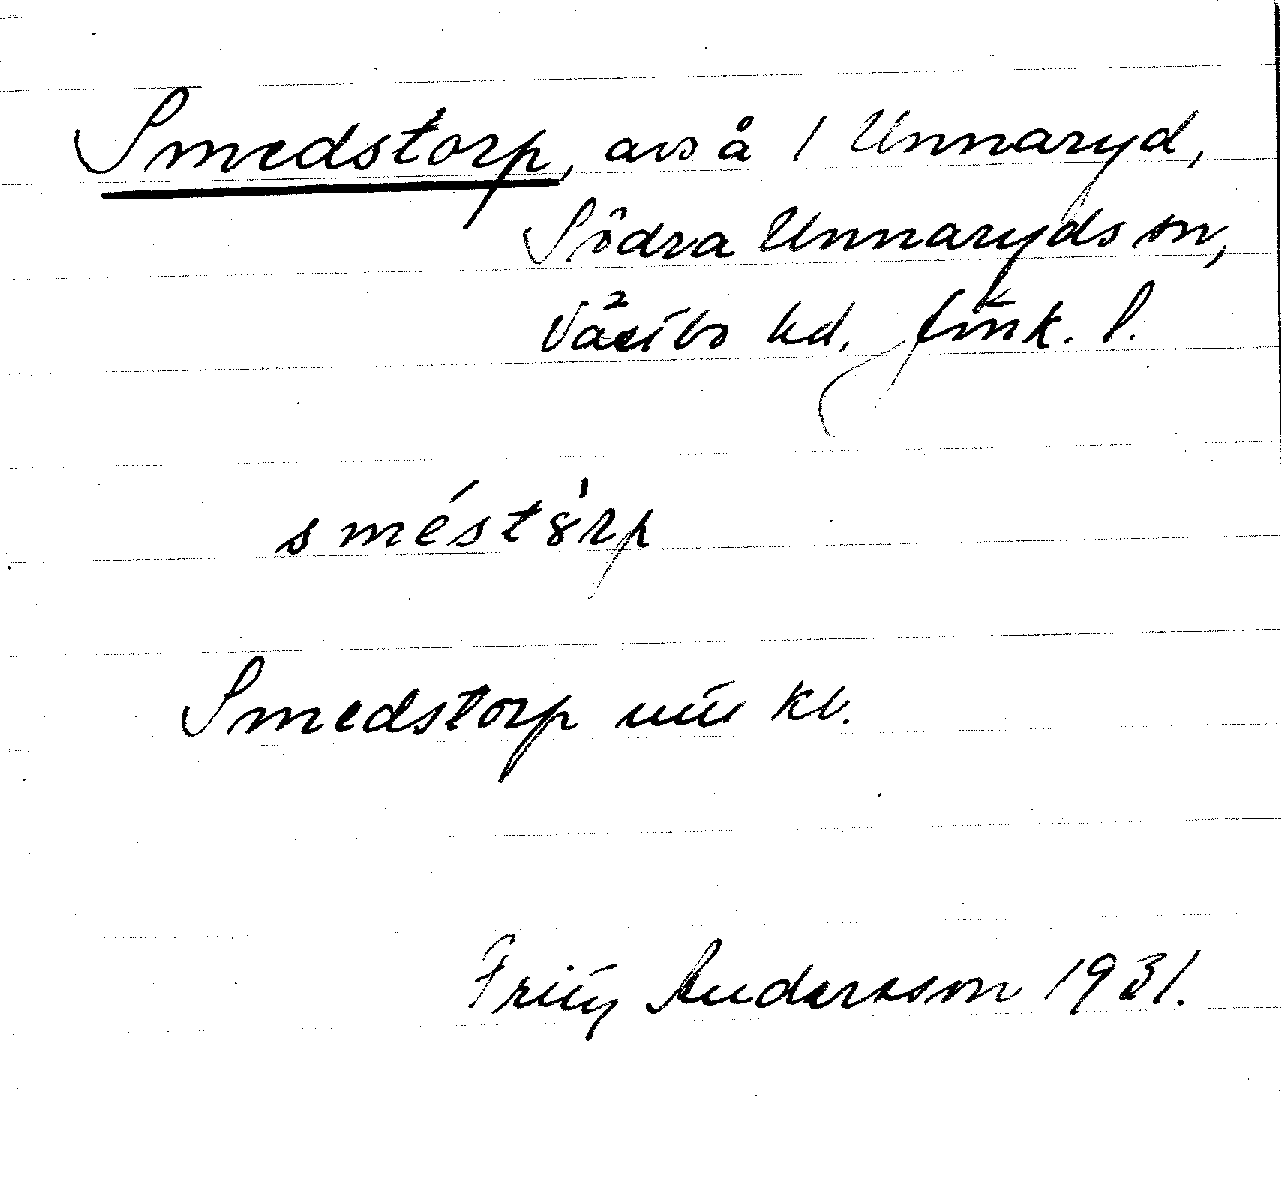 Smedstorp, avs å 1 Unnaryd,
Södra Unnaryds sn,
Västbo hd, Jönk. l.
sméstörp
Smedstorp kv.
Fritz Andersson 1931.